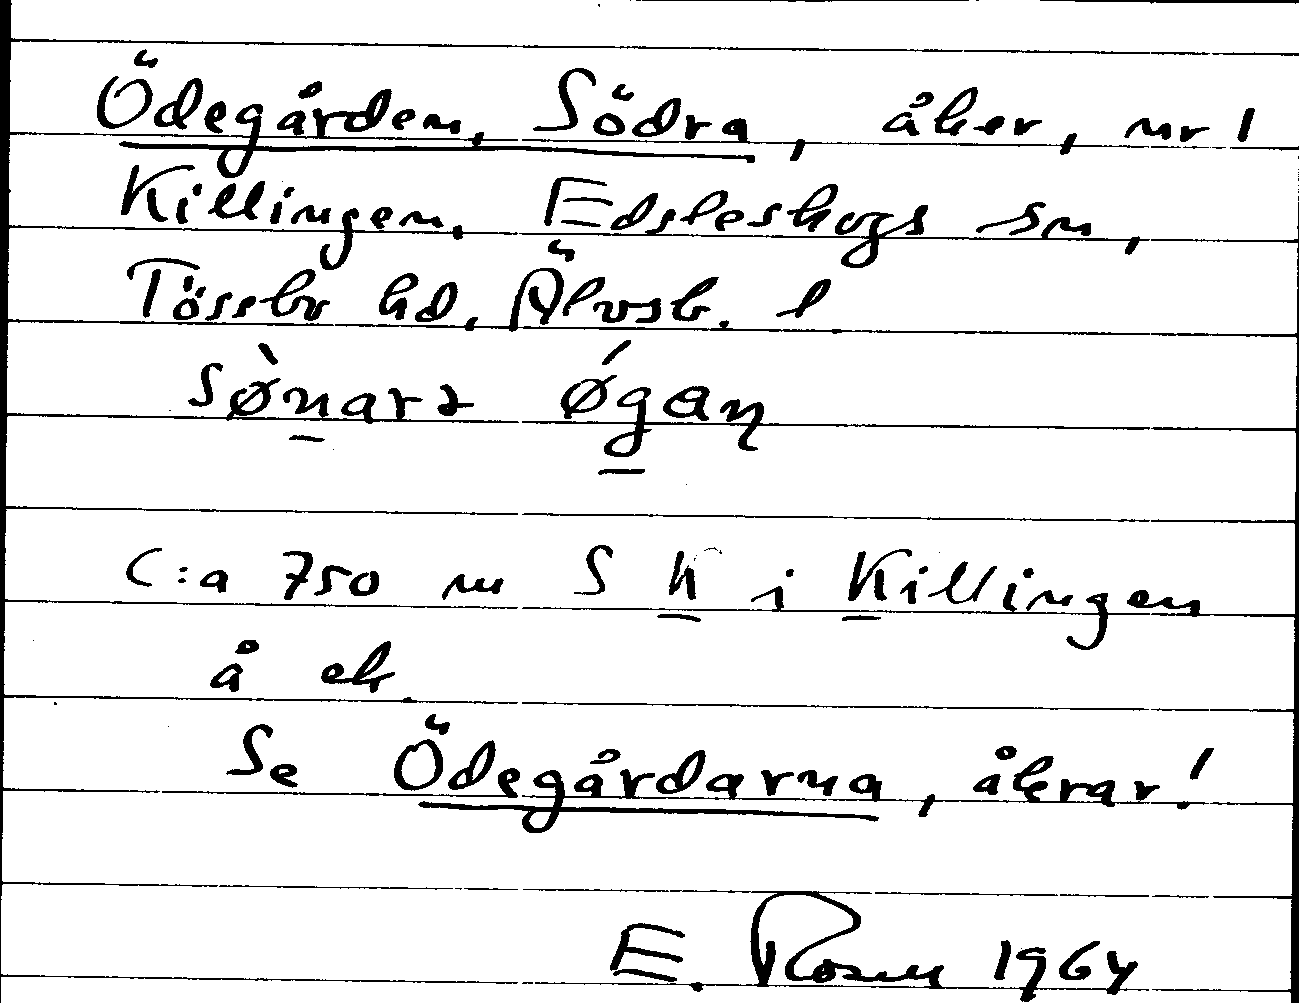 Ödegården, Södra, åker, nr 1
Killingen. Edsleskogs sn,
Tössbo hd. Älvsb. l.
Se Ödegårdarna, åkrar!
C:a 750 m S K i Killingen
å ek.
E. Rosell 1964